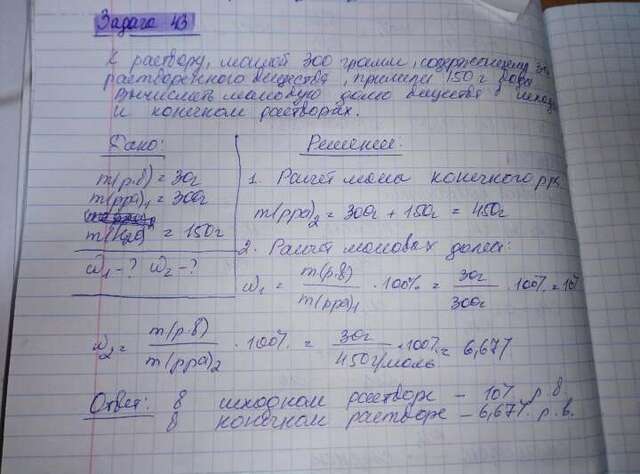 Задача 43
К раствору, массой 300 грамм, содержащему 30г
растворенного вещества, прилили 150г воды
Вычислить массовую долю вещества в исход
и конечном растворах.
Дано:
m(р.в) = 30г
m(рра)₁ = 300г
m(H₂O) = 150г
ω₁ - ? ω₂ - ?
Решение.
1. Расчет массы конечного рра
m(рра)₂ = 300г + 150г = 450г
2. Расчет массовых долей:
ω₁ = m(р.в) / m(рра)₁ · 100% = 30г / 300г · 100% = 10%
ω₂ = m(р.в) / m(рра)₂ · 100% = 30г / 450г/моль · 100% = 6,67%
Ответ: в исходном растворе - 10% р.в.
в конечном растворе - 6,67% р.в.